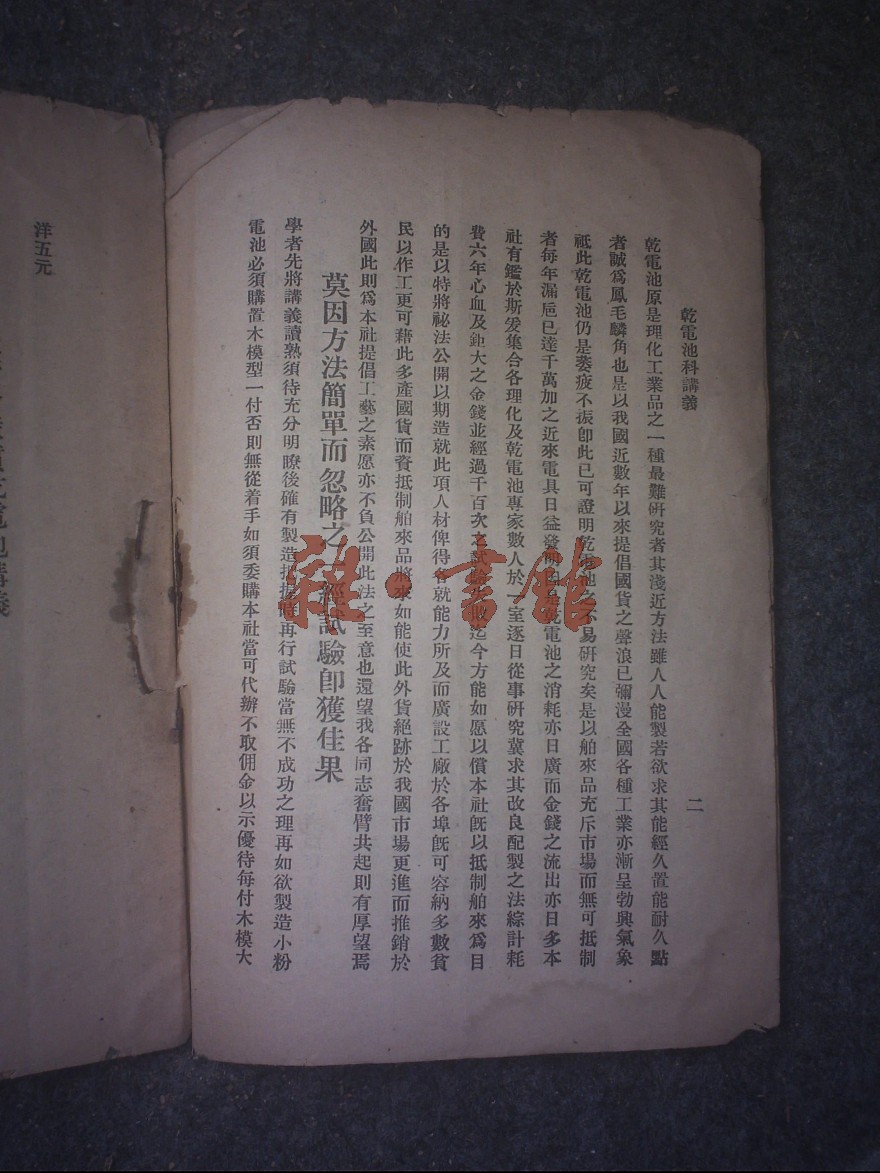 乾電池科講義
二
乾電池原是理化工業品之一種最難硏究者其淺近方法雖人人能製若欲求其能經久置能耐久點
者誠爲鳳毛麟角也是以我國近數年以來提倡國貨之聲浪已彌漫全國各種工業亦漸呈勃興氣象
祗此乾電池仍是萎疲不振卽此已可證明乾電池之不易硏究矣是以舶來品充斥市場而無可抵制
者每年漏巵已達千萬加之近來電具日益發明因是乾電池之消耗亦日廣而金錢之流出亦日多本
社有鑑於斯爰集合各理化及乾電池專家數人於一室逐日從事硏究冀求其改良配製之法綜計耗
費六年心血及鉅大之金錢並經過千百次之試驗失敗迄今方能如愿以償本社旣以抵制舶來爲目
的是以特將祕法公開以期造就此項人材俾得各就能力所及而廣設工廠於各埠旣可容納多數貧
民以作工更可藉此多產國貨而資抵制舶來品將來如能使此外貨絕跡於我國市場更進而推銷於
外國此則爲本社提倡工藝之素愿亦不負公開此法之至意也還望我各同志奮臂共起則有厚望焉
莫因方法簡單而忽略之一經試驗卽獲佳果
學者先將講義讀熟須待充分明瞭後確有製造把握時再行試驗當無不成功之理再如欲製造小粉
電池必須購置木模型一付否則無從着手如須委購本社當可代辦不取佣金以示優待每付木模大
洋五元
雜·書館